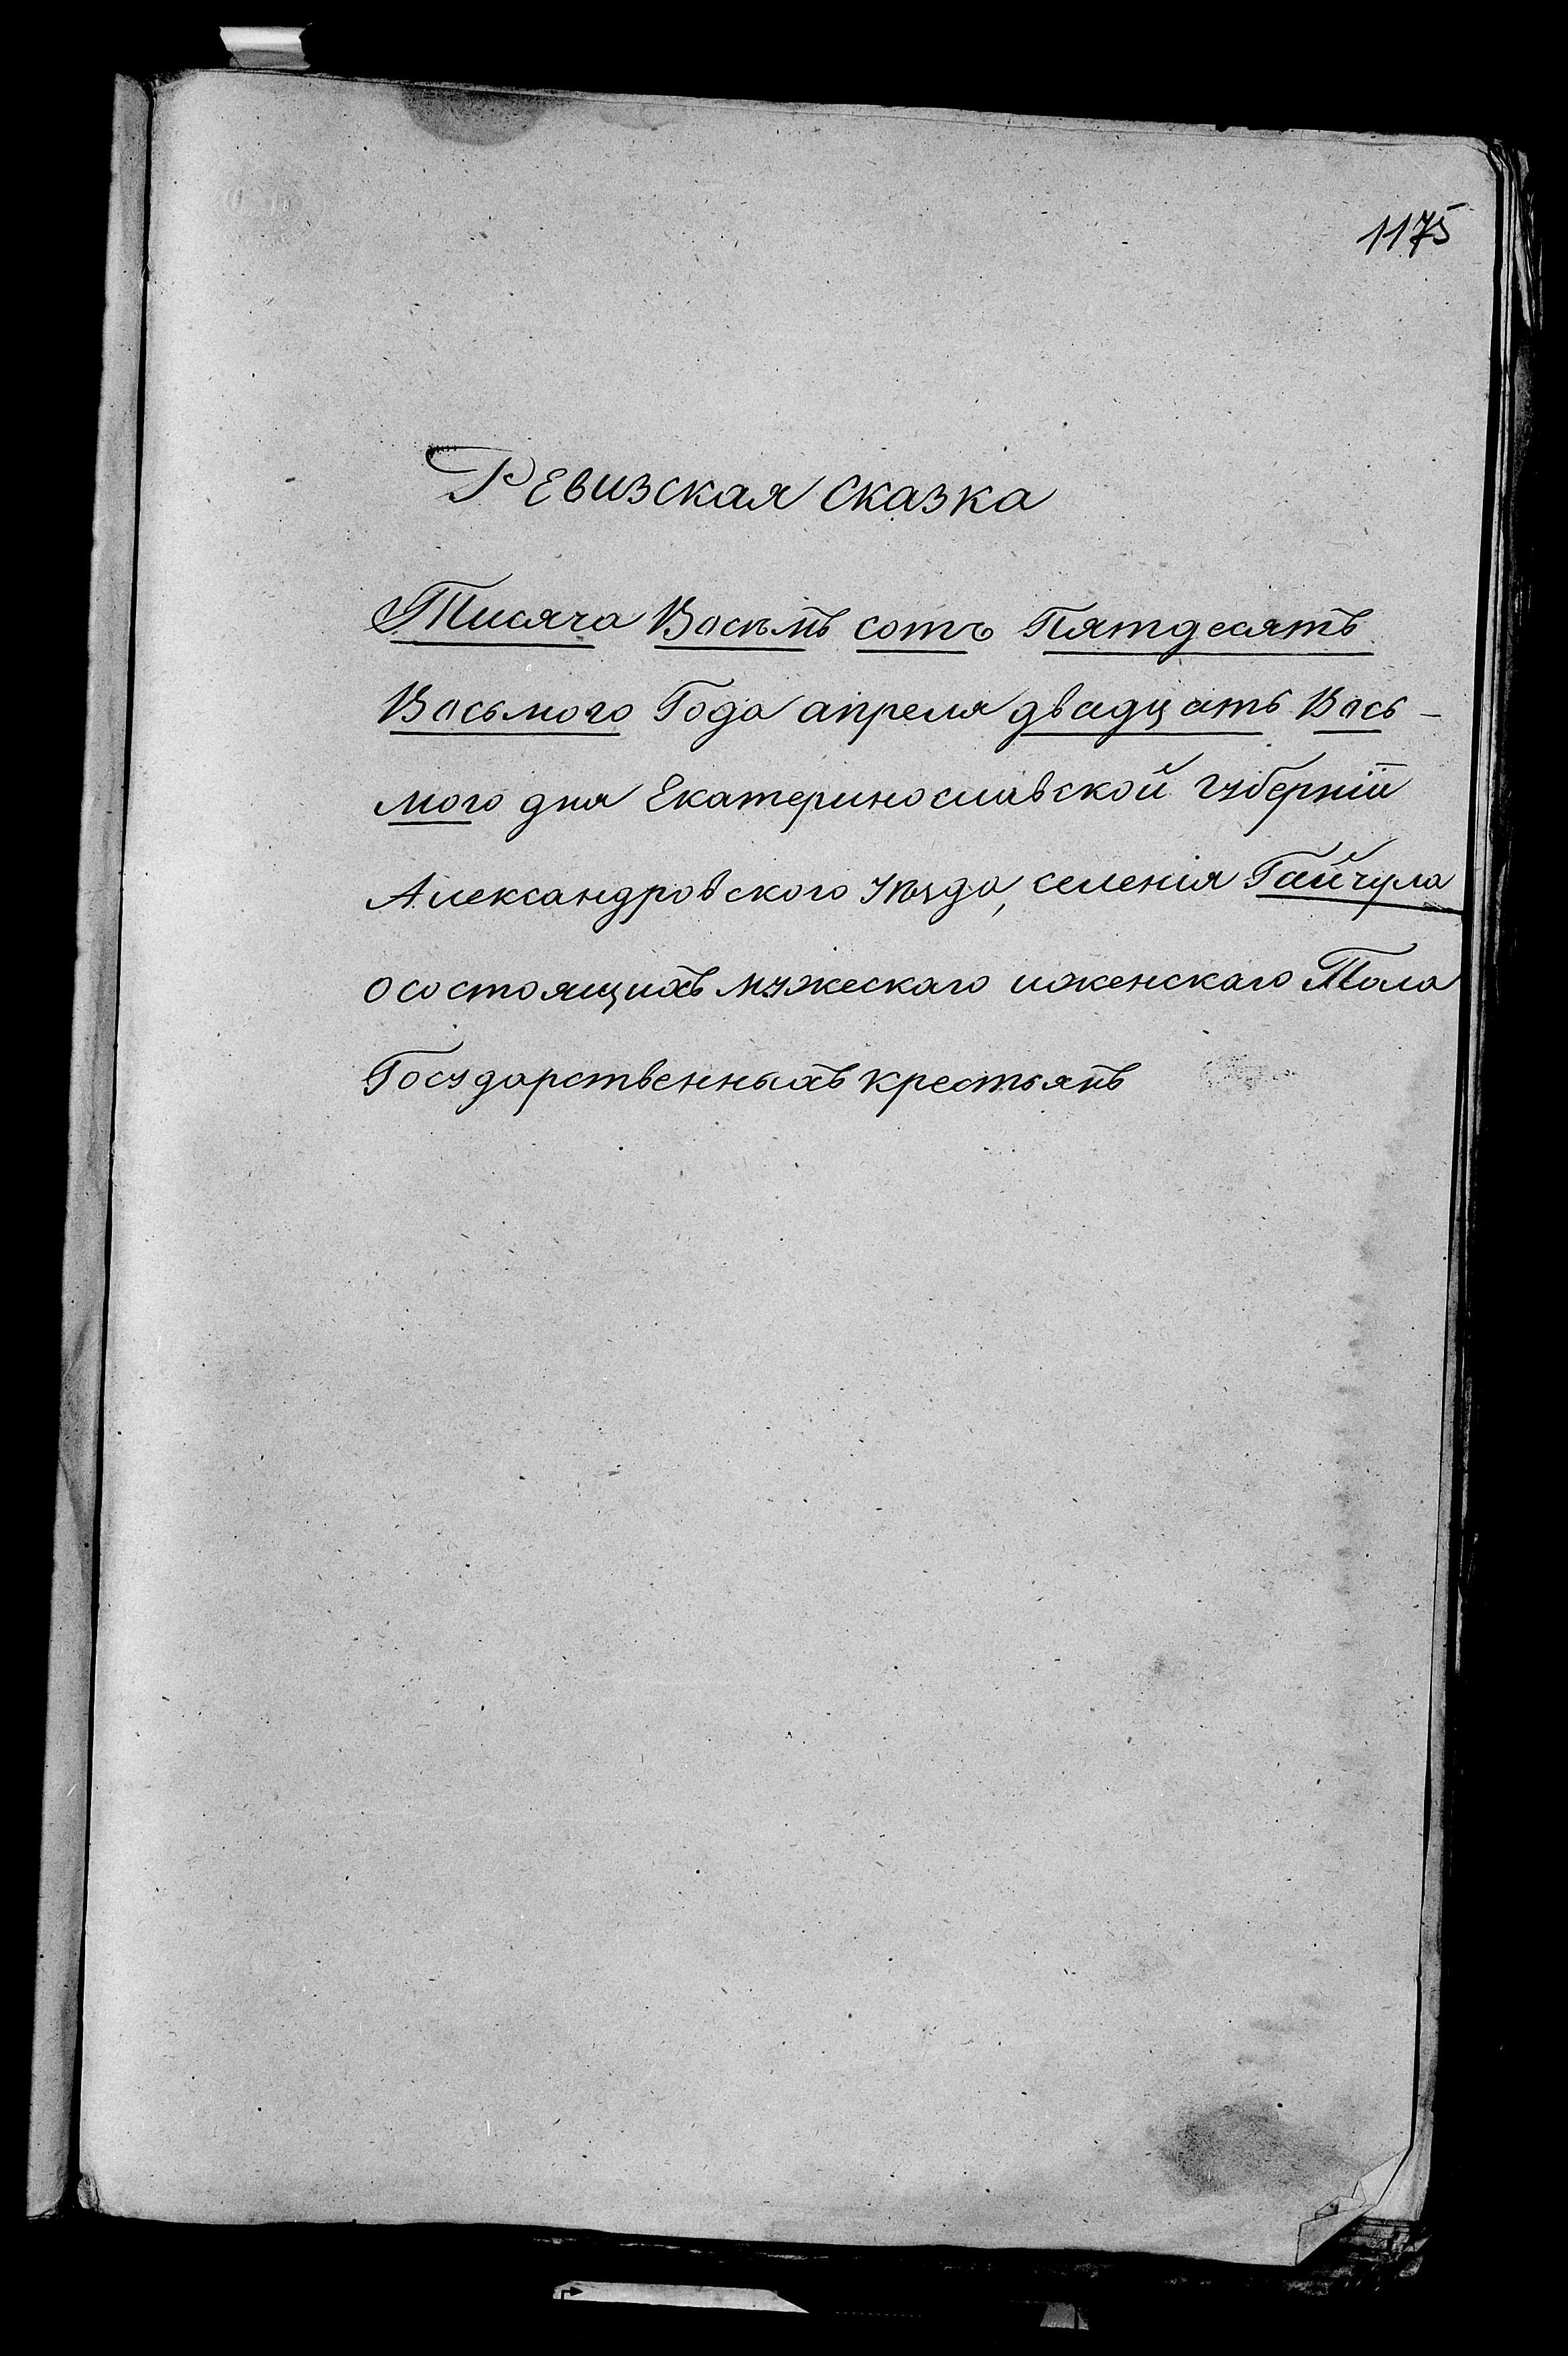 1175
Ревизская сказка
Тисяча Восьмъ сотъ Пятдесятъ
Восьмого Года апреля двадцать Вось-
мого дня Екатеринославской губерніи
Александровского уѣзда, селенія Гайчула
осостоящихъ мужескаго иженскаго Пола
Государственныхъ крестьянъ